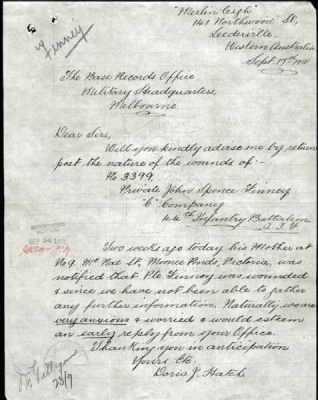 Finney
"Merlin Leigh"
141 Northwood St,
Leederville,
Western Australia
Sept. 17th 1918
The Base Records Office
Military Headquarters,
Melbourne.
Dear Sirs,
Will you kindly advise me by return
post the nature of the wounds of:-
No 3399,
Private John Spence Finney
"C" Company
44th Infantry Battalion
A.I.F
Two weeks ago today his Mother at
No 9. McNae St, Moonee Ponds, Victoria, was
notified that Pte Finney was wounded
& since we have not been able to gather
any further information. Naturally we are
very anxious & worried & would esteem
an early reply from your Office.
Thanking you in anticipation
Yours Etc.
Doris J. Hatch
23/9